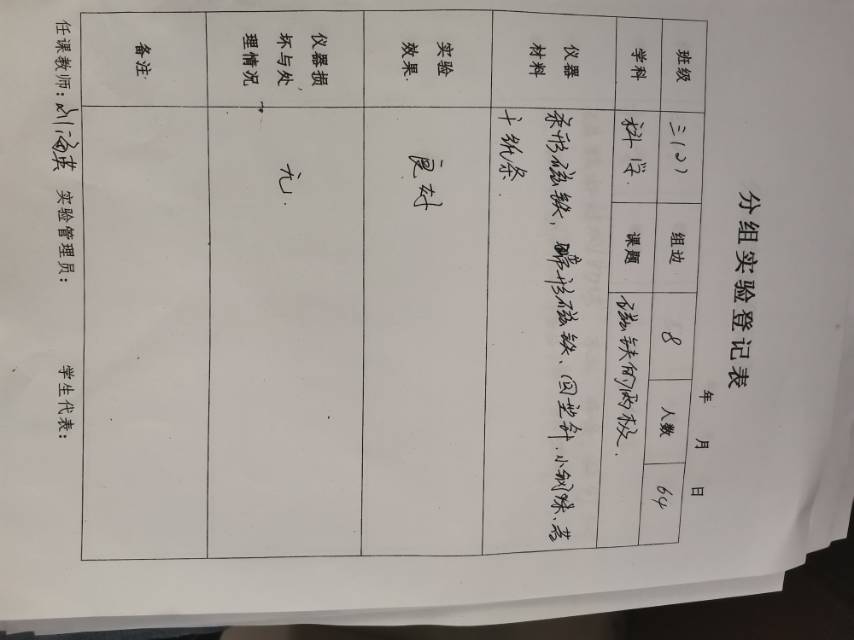 分组实验登记表
年 月 日
班级 三(2) 组边 8 人数 64
学科 科学. 课题 磁铁的两极.
仪器 条形磁铁, 蹄形磁铁、回型针、小钢珠、若
材料 干纸条.
实验
效果. 良好
仪器损
坏与处
理情况 无.
备注
任课教师: 刘海英 实验管理员: 学生代表: